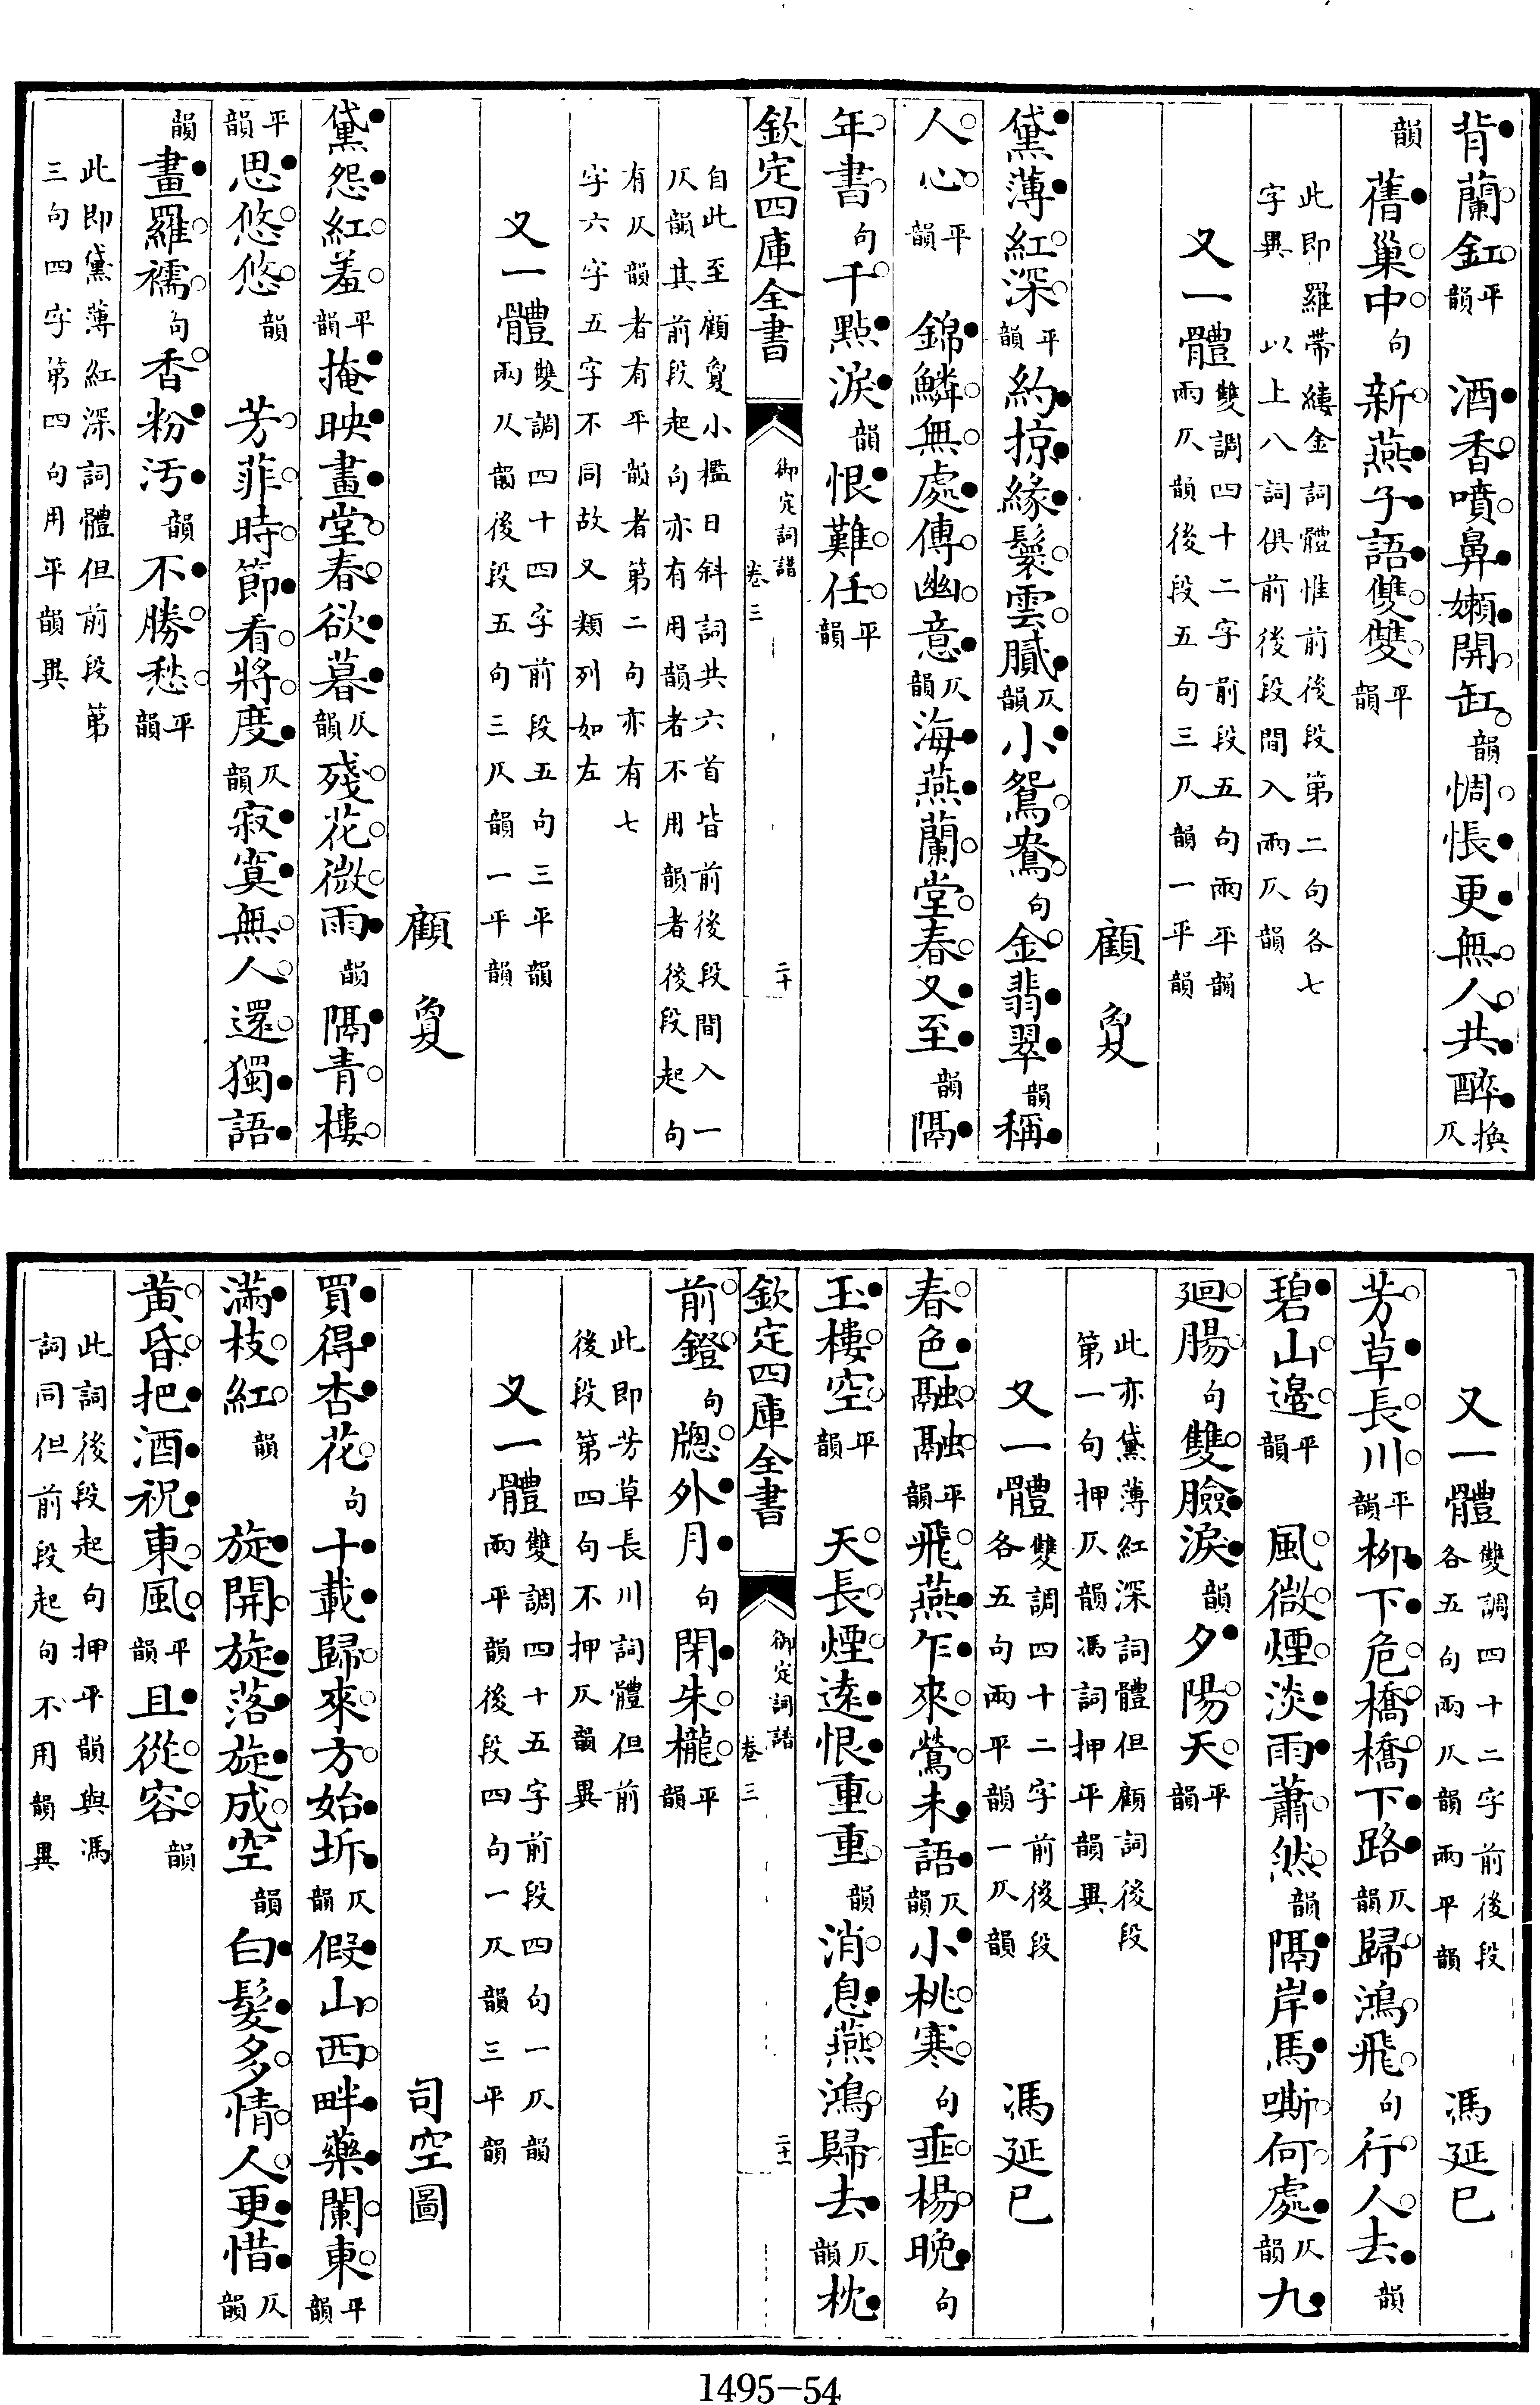 背蘭釭平韻　酒香噴鼻嬾開缸韻惆悵更無人共醉換仄
韻舊巢中句新燕子語雙雙平韻
此即羅帶縷金詞體惟前後段第二句各七
字異　以上八詞俱前後段間入兩仄韻
又一體雙調四十二字前段五句兩平韻兩仄韻後段五句三仄韻一平韻
顧夐
黛薄紅深平韻約掠緑鬟雲膩仄韻小鴛鴦句金翡翠韻稱
人心平韻　錦鱗無處傳幽意仄韻海燕蘭堂春又至韻隔
年書句千點淚韻恨難任平韻
欽定四庫全書　御定詞譜卷三　二十
自此至顧夐小檻日斜詞共六首皆前後段間入一
仄韻其前段起句亦有用韻者不用韻者後段起句
有仄韻者有平韻者第二句亦有七
字六字五字不同故又類列如左
又一體雙調四十四字前段五句三平韻兩仄韻後段五句三仄韻一平韻
顧夐
黛怨紅羞平韻掩映畫堂春欲暮仄韻殘花微雨韻隔青樓
平韻思悠悠韻　芳菲時節看將度仄韻寂寞無人還獨語
韻畫羅襦句香粉汚韻不勝愁平韻
此即黛薄紅深詞體但前段第
三句四字第四句用平韻異
又一體雙調四十二字前後段各五句兩仄韻兩平韻　馮延巳
芳草長川平韻柳下危橋橋下路仄韻歸鴻飛句行人去韻
碧山邉平韻　風微煙淡雨蕭然韻隔岸馬嘶何處仄韻九
廻腸句雙臉淚韻夕陽天平韻
此亦黛薄紅深詞體但顧詞後段
第一句押仄韻馮詞押平韻異
又一體雙調四十二字前後段各五句兩平韻一仄韻　馮延巳
春色融融平韻飛燕乍來鶯未語仄韻小桃寒句垂楊晚句
玉樓空平韻　天長煙遠恨重重韻消息燕鴻歸去仄韻枕
欽定四庫全書　御定詞譜卷三　二十一
前鐙句牕外月句閉朱櫳平韻
此即芳草長川詞體但前
後段第四句不押仄韻異
又一體雙調四十五字前段四句一仄韻兩平韻後段四句一仄韻三平韻
司空圖
買得杏花句十載歸來方始坼仄韻假山西畔藥闌東平韻
滿枝紅韻　旋開旋落旋成空韻白髮多情人更惜仄韻
黃昏把酒祝東風平韻且從容韻
此詞後段起句押平韻與馮
詞同但前段起句不用韻異
1495-54